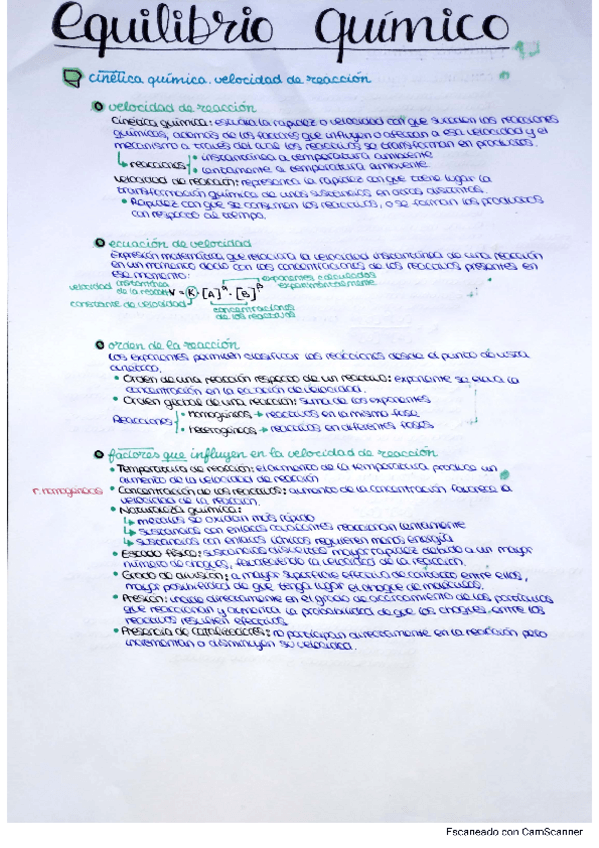 equilibrio químico
cinética química. velocidad de reacción
velocidad de reacción
Cinética química: estudia la rapidez o velocidad con que suceden las reacciones
químicas, además de los factores que influyen o afectan a esa velocidad y el
mecanismo a través del cual los reactivos se transforman en productos.
reacciones
instantánea a temperatura ambiente
lentamente a temperatura ambiente
velocidad de reacción: representa la rapidez con que tiene lugar la
transformación química de unas sustancias en otras distintas.
Rapidez con que se consumen los reactivos, o se forman los productos
con respecto al tiempo.
ecuación de velocidad
Expresión matemática que relaciona la velocidad instantánea de una reacción
en un momento dado con las concentraciones de los reactivos presentes en
ese momento:
exponentes calculados
experimentalmente
velocidad instantánea
de la reacción
V = K · [A]^α · [B]^β
constante de velocidad
concentraciones
de los reactivos
orden de la reacción
Los exponentes permiten clasificar las reacciones desde el punto de vista
cinético.
Orden de una reacción respecto de un reactivo: exponente se eleva la
concentración en la ecuación de velocidad.
Orden global de una reacción: suma de los exponentes
Reacciones
homogéneas → reactivos en la misma fase
heterogéneas → reactivos en diferentes fases
factores que influyen en la velocidad de reacción
Temperatura de reacción: el aumento de la temperatura produce un
aumento de la velocidad de reacción
r. homogéneas
Concentración de los reactivos: aumento de la concentración favorece la
velocidad de la reacción.
Naturaleza química:
metales se oxidan más rápido
sustancias con enlaces covalentes reaccionan lentamente
sustancias con enlaces iónicos requieren menos energía
Estado físico: sustancias disueltas mayor rapidez debido a un mayor
número de choques, favoreciendo la velocidad de la reacción.
Grado de división: a mayor superficie efectiva de contacto entre ellos,
mayor posibilidad de que tenga lugar el choque de moléculas.
Presión: incide directamente en el grado de acercamiento de las partículas
que reaccionan y aumenta la probabilidad de que los choques entre los
reactivos resulten efectivos.
Presencia de catalizadores: no participan directamente en la reacción pero
incrementan o disminuyen su velocidad.
Escaneado con CamScanner